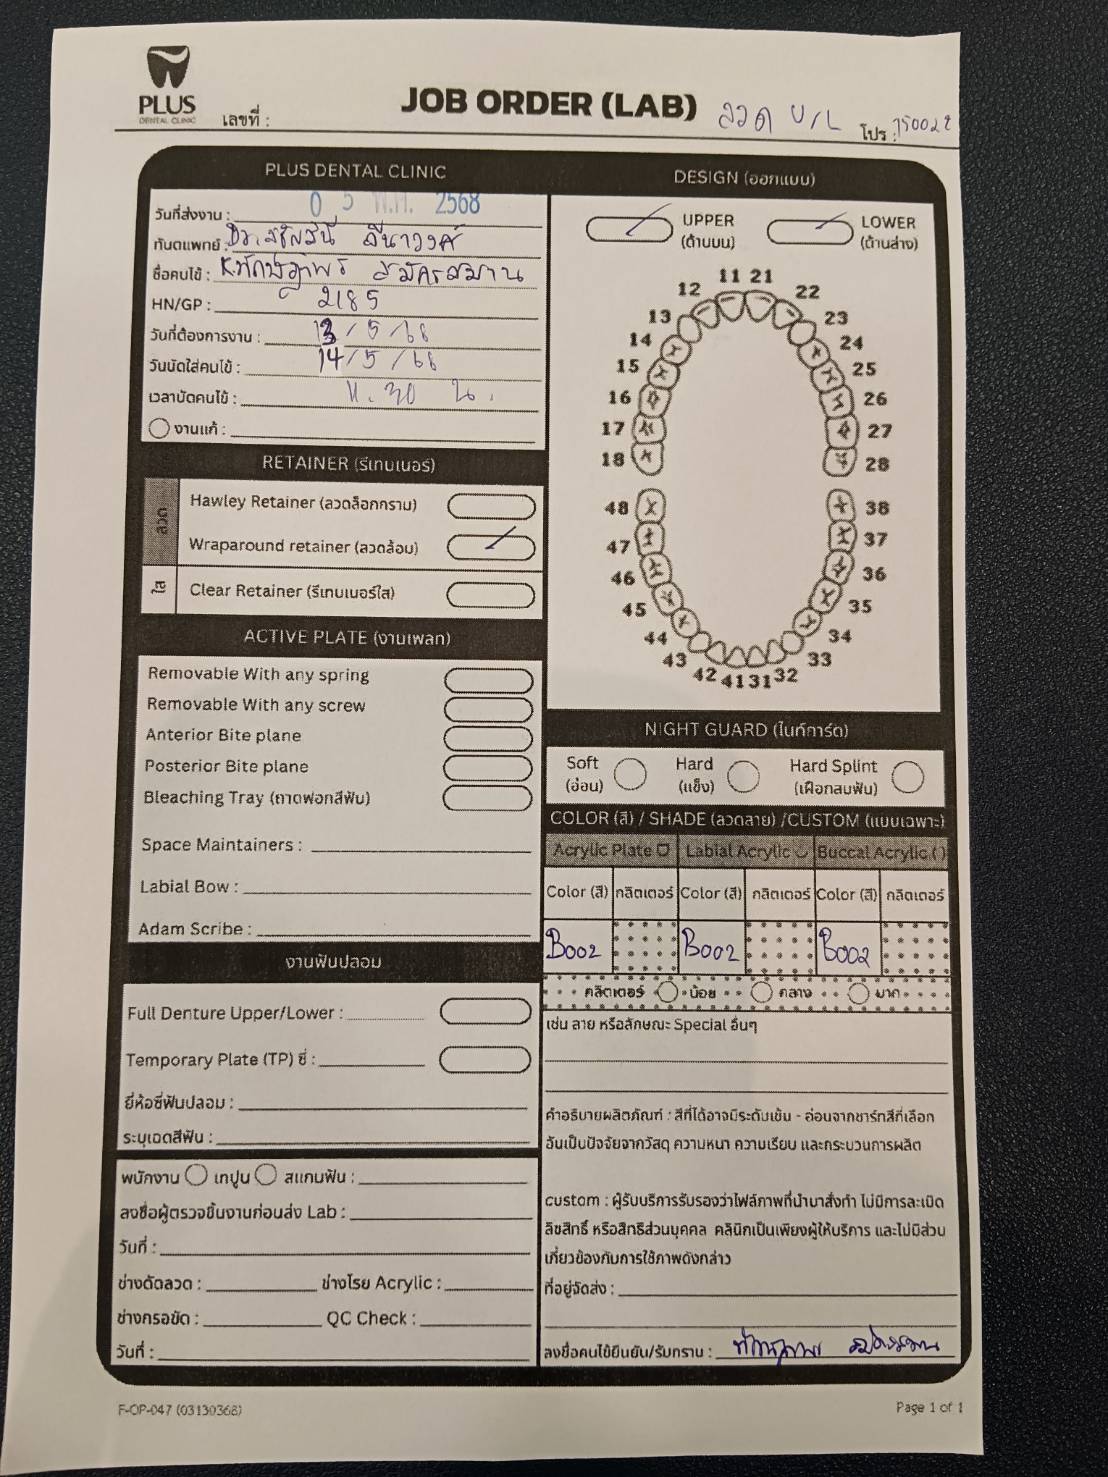 PLUS
DENTAL CLINIC
เลขที่ :
JOB ORDER (LAB)
ลวด U/L
โปร :
PLUS DENTAL CLINIC
วันที่ส่งงาน : 0 5 พ.ค. 2568
ทันตแพทย์ :
ชื่อคนไข้ : สมัครสมาน
HN/GP : 2185
วันที่ต้องการงาน : 13/5/68
วันนัดใส่คนไข้ : 14/5/68
เวลานัดคนไข้ : 11.30 น.
งานแก้ :
RETAINER (รีเทนเนอร์)
ลวด
Hawley Retainer (ลวดล็อกกราม)
Wraparound retainer (ลวดล้อม)
ใส
Clear Retainer (รีเทนเนอร์ใส)
ACTIVE PLATE (งานเพลท)
Removable With any spring
Removable With any screw
Anterior Bite plane
Posterior Bite plane
Bleaching Tray (ถาดฟอกสีฟัน)
Space Maintainers :
Labial Bow :
Adam Scribe :
งานฟันปลอม
Full Denture Upper/Lower :
Temporary Plate (TP) ซี่ :
ยี่ห้อซี่ฟันปลอม :
ระบุเฉดสีฟัน :
พนักงาน เทปูน สแกนฟัน :
ลงชื่อผู้ตรวจชิ้นงานก่อนส่ง Lab :
วันที่ :
ช่างดัดลวด : ช่างโรย Acrylic :
ช่างกรอขัด : QC Check :
วันที่ :
DESIGN (ออกแบบ)
UPPER
(ด้านบน)
LOWER
(ด้านล่าง)
11 21
12 22
13 23
14 24
15 25
16 26
17 27
18 28
48 38
47 37
46 36
45 35
44 34
43 33
42 41 31 32
NIGHT GUARD (ไนท์การ์ด)
Soft
(อ่อน)
Hard
(แข็ง)
Hard Splint
(เฝือกสบฟัน)
COLOR (สี) / SHADE (ลวดลาย) /CUSTOM (แบบเฉพาะ)
Acrylic Plate Labial Acrylic Buccal Acrylic ( )
Color (สี) กลิตเตอร์ Color (สี) กลิตเตอร์ Color (สี) กลิตเตอร์
B002 B002 B002
กลิตเตอร์ น้อย กลาง มาก
เช่น ลาย หรือลักษณะ Special อื่นๆ
คำอธิบายผลิตภัณฑ์ : สีที่ได้อาจมีระดับเข้ม - อ่อนจากชาร์ทสีที่เลือก
อันเป็นปัจจัยจากวัสดุ ความหนา ความเรียบ และกระบวนการผลิต
custom : ผู้รับบริการรับรองว่าไฟล์ภาพที่นำมาสั่งทำ ไม่มีการละเมิด
ลิขสิทธิ์ หรือสิทธิส่วนบุคคล คลินิกเป็นเพียงผู้ให้บริการ และไม่มีส่วน
เกี่ยวข้องกับการใช้ภาพดังกล่าว
ที่อยู่จัดส่ง :
ลงชื่อคนไข้ยืนยัน/รับทราบ :
F-OP-047 (03130368)
Page 1 of 1